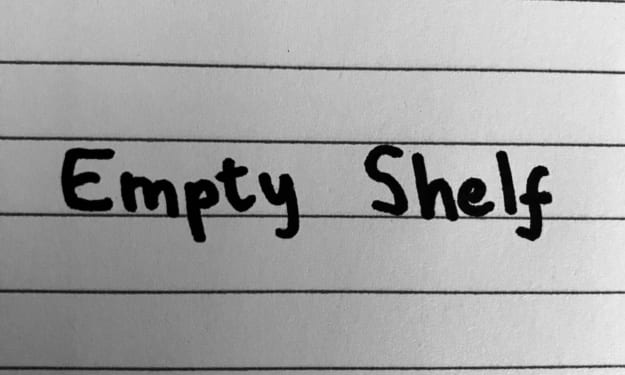 Empty Shelf